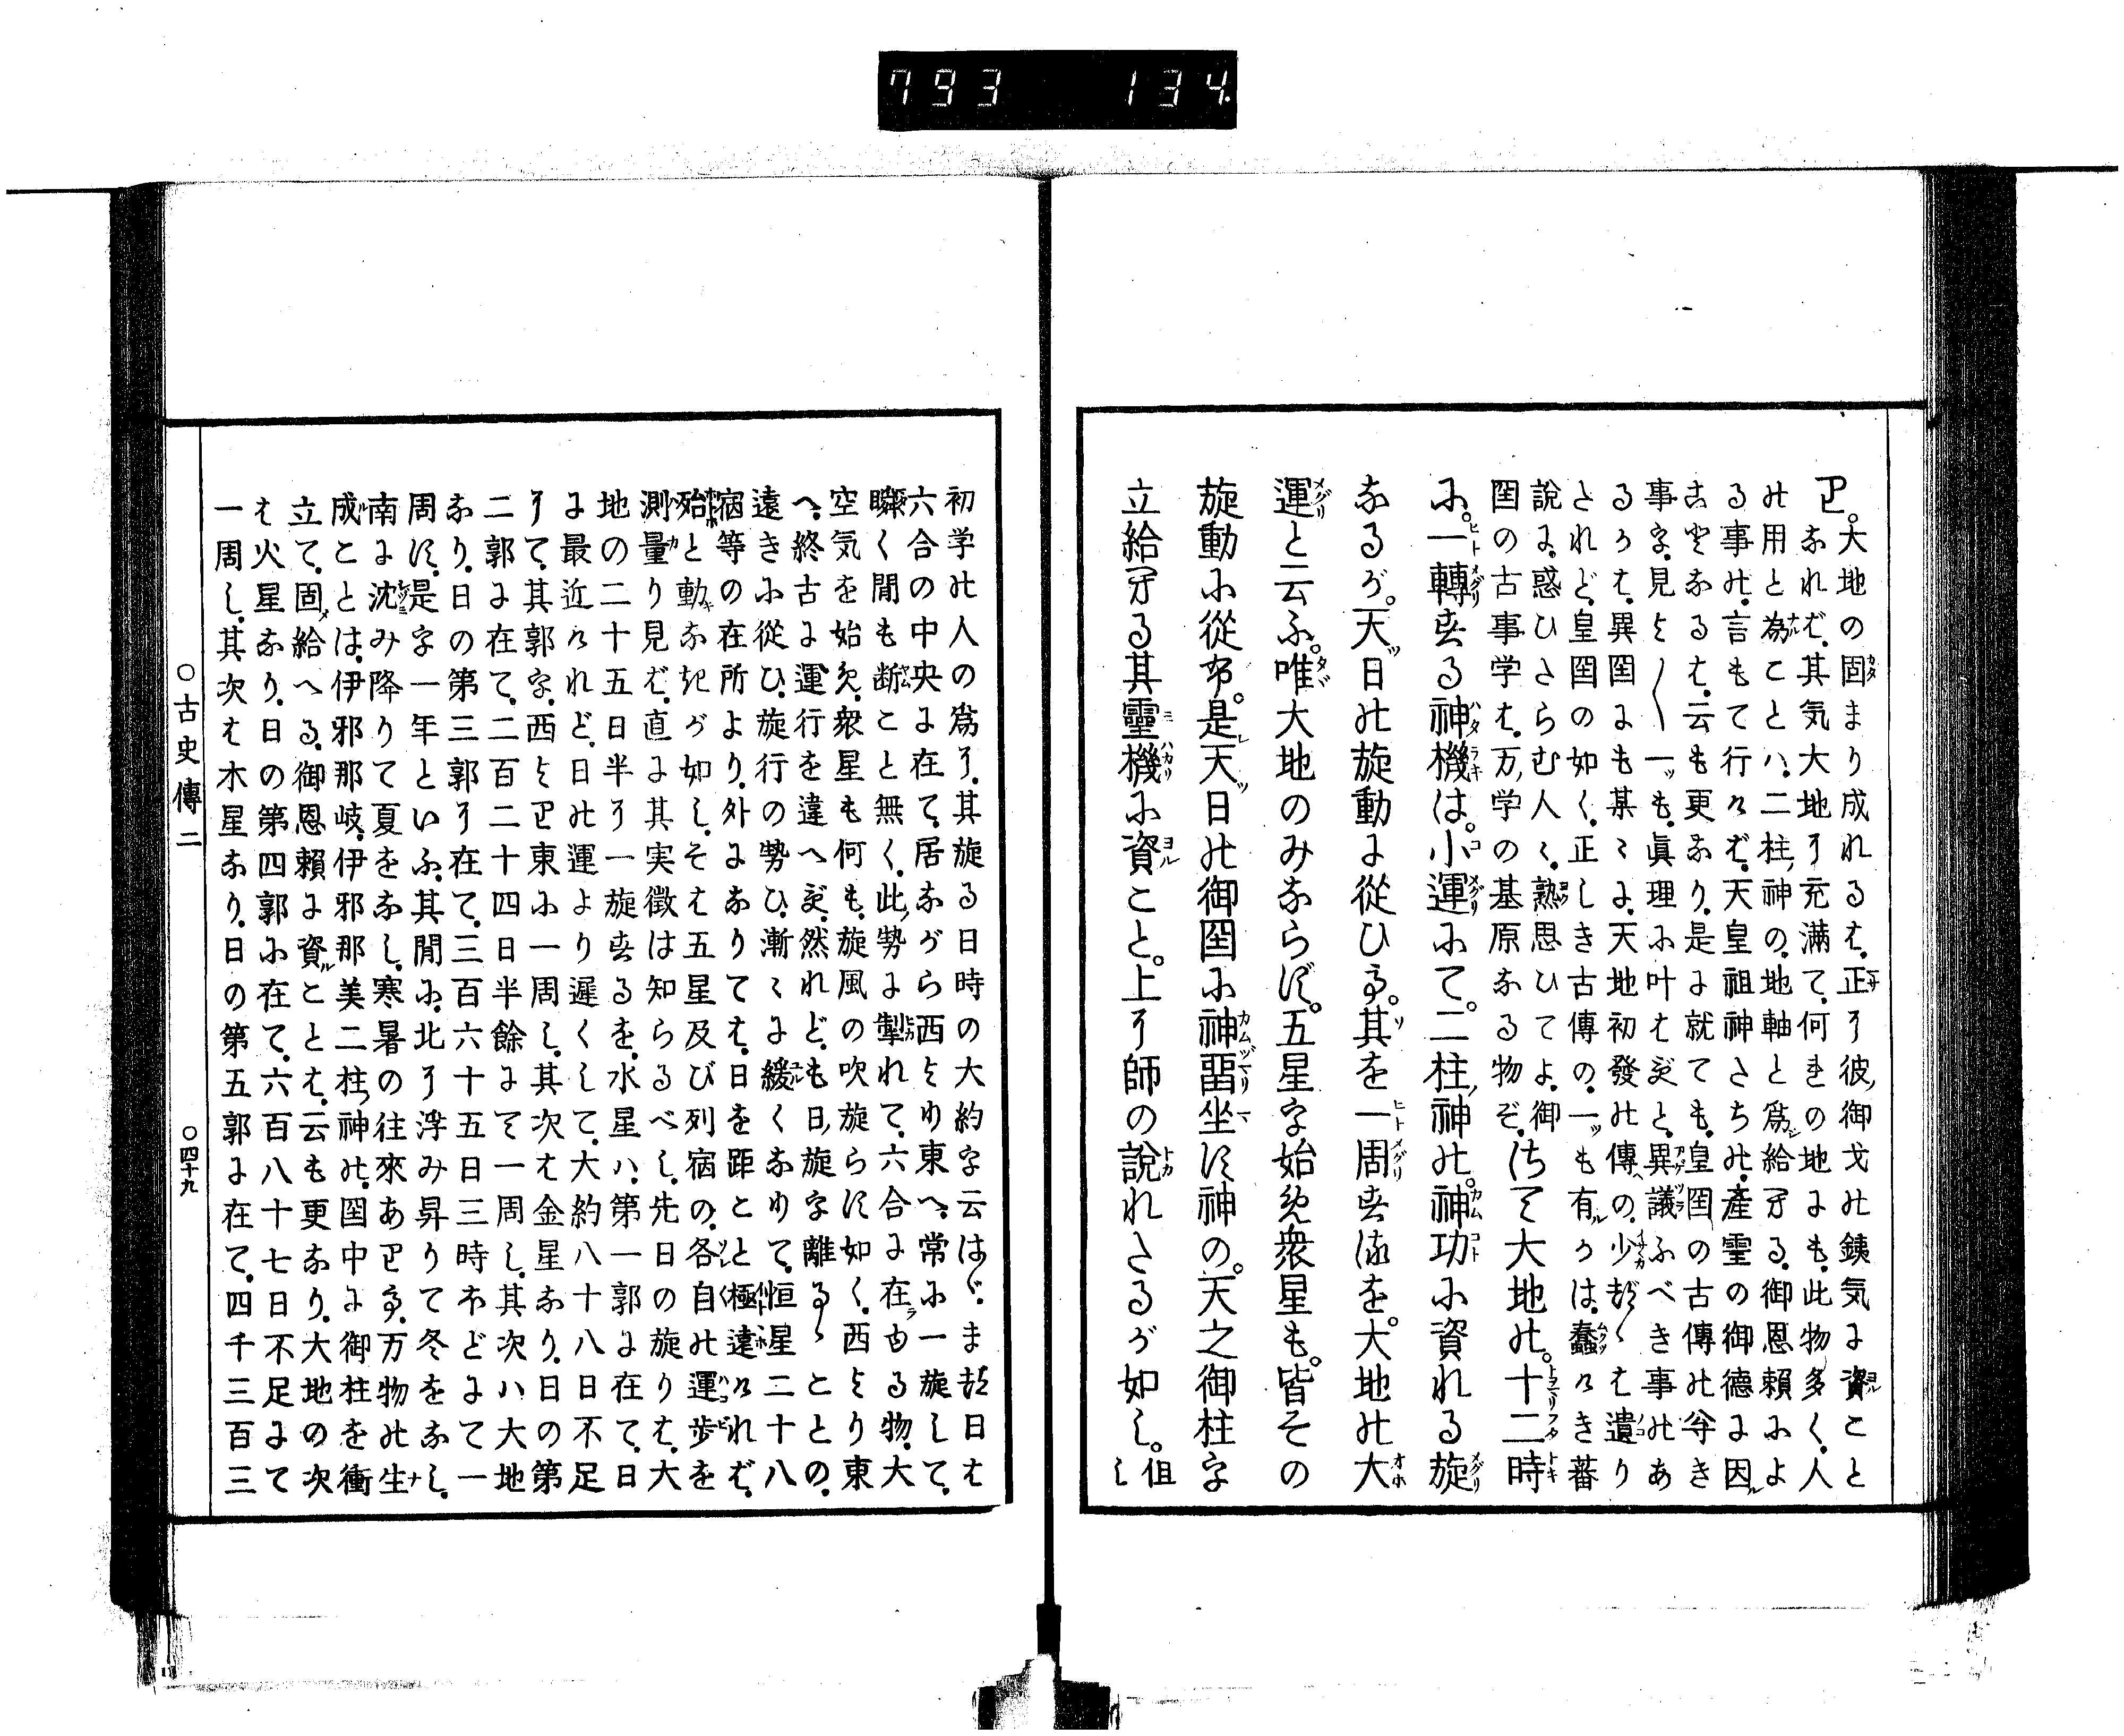 793 134
大地の固まり成れるは。正に彼御戈の銕気に資こと
已。なれば。其気大地に充満て。何きの地にも。此物多く。人
の用と為ことハ。二柱神の。地軸と為給へる。御恩頼によ
る事の。言もて行けば。天皇祖神たちの。産霊の御徳に因
古史なるは。云も更なり。是に就ても。皇国の古傳の尊き
事を。見と〳〵一ッも。眞理に叶はざと。異議ふべき事のあ
るうは。異国にも某〻に。天地初發の傳への。少かづゝは遺り
されど。皇国の如く。正しき古傳の。一ッも有うは。蠢けき蕃
說に。惑ひさらむ人〻。熟思ひてよ。御
国の古事学は。万学の基原なる物ぞ。はて大地の。十二時
に。一轉する神機は。小運にて。二柱神の。神功に資れる旋
なるが。天日の旋動に從ひて。其を一周するを。大地の大
運と云ふ。唯大地のみならず。五星を始め衆星も。皆その
旋動に從ふ。是天ッ日の御国に神留坐す神の。天之御柱を
立給へる其霊機に資こと。上に師の說れたるが如し。但し
初学の人の爲に。其旋る日時の大約を云はゞ。まづ日は
六合の中央に在て。居ながら西より東へ。常に一旋して。
瞬く間も断こと無く。此勢に掣れて。六合に在ゆる物。大
空気を始め。衆星も何も。旋風の吹旋らす如く。西より東
へ。終古に運行を違へず。然れども日旋を離るゝことの。
遠きに從ひ。旋行の勢ひ。漸〻に緩くなりて。恒星二十八
宿等の在所より。外になりては。日を距こと極遠ければ。
殆と動なきが如し。そは五星及び列宿の。各自の運歩を
測量り見ば。直に其実徴は知らるべし。先日の旋りは。大
地の二十五日半に一旋するを。水星ハ。第一郭に在て。日
に最近けれど。日の運より遲くして。大約八十八日不足
にて。其郭を。西より東に一周し。其次は金星なり。日の第
二郭に在て。二百二十四日半餘にて一周し。其次ハ大地
なり。日の第三郭に在て。三百六十五日三時ホどにて一
周す。是を一年といふ。其間に。北に浮み昇りて冬をなし。
南に沈み降りて夏をなし。寒暑の往來ありて。万物の生
成ことは。伊邪那岐。伊邪那美二柱神の。国中に御柱を衝
立て。固給へる。御恩頼に資ことは。云も更なり。大地の次
は火星なり。日の第四郭に在て。六百八十七日不足にて
一周し。其次は木星なり。日の第五郭に在て。四千三百三
○古史傳二 ○四十九